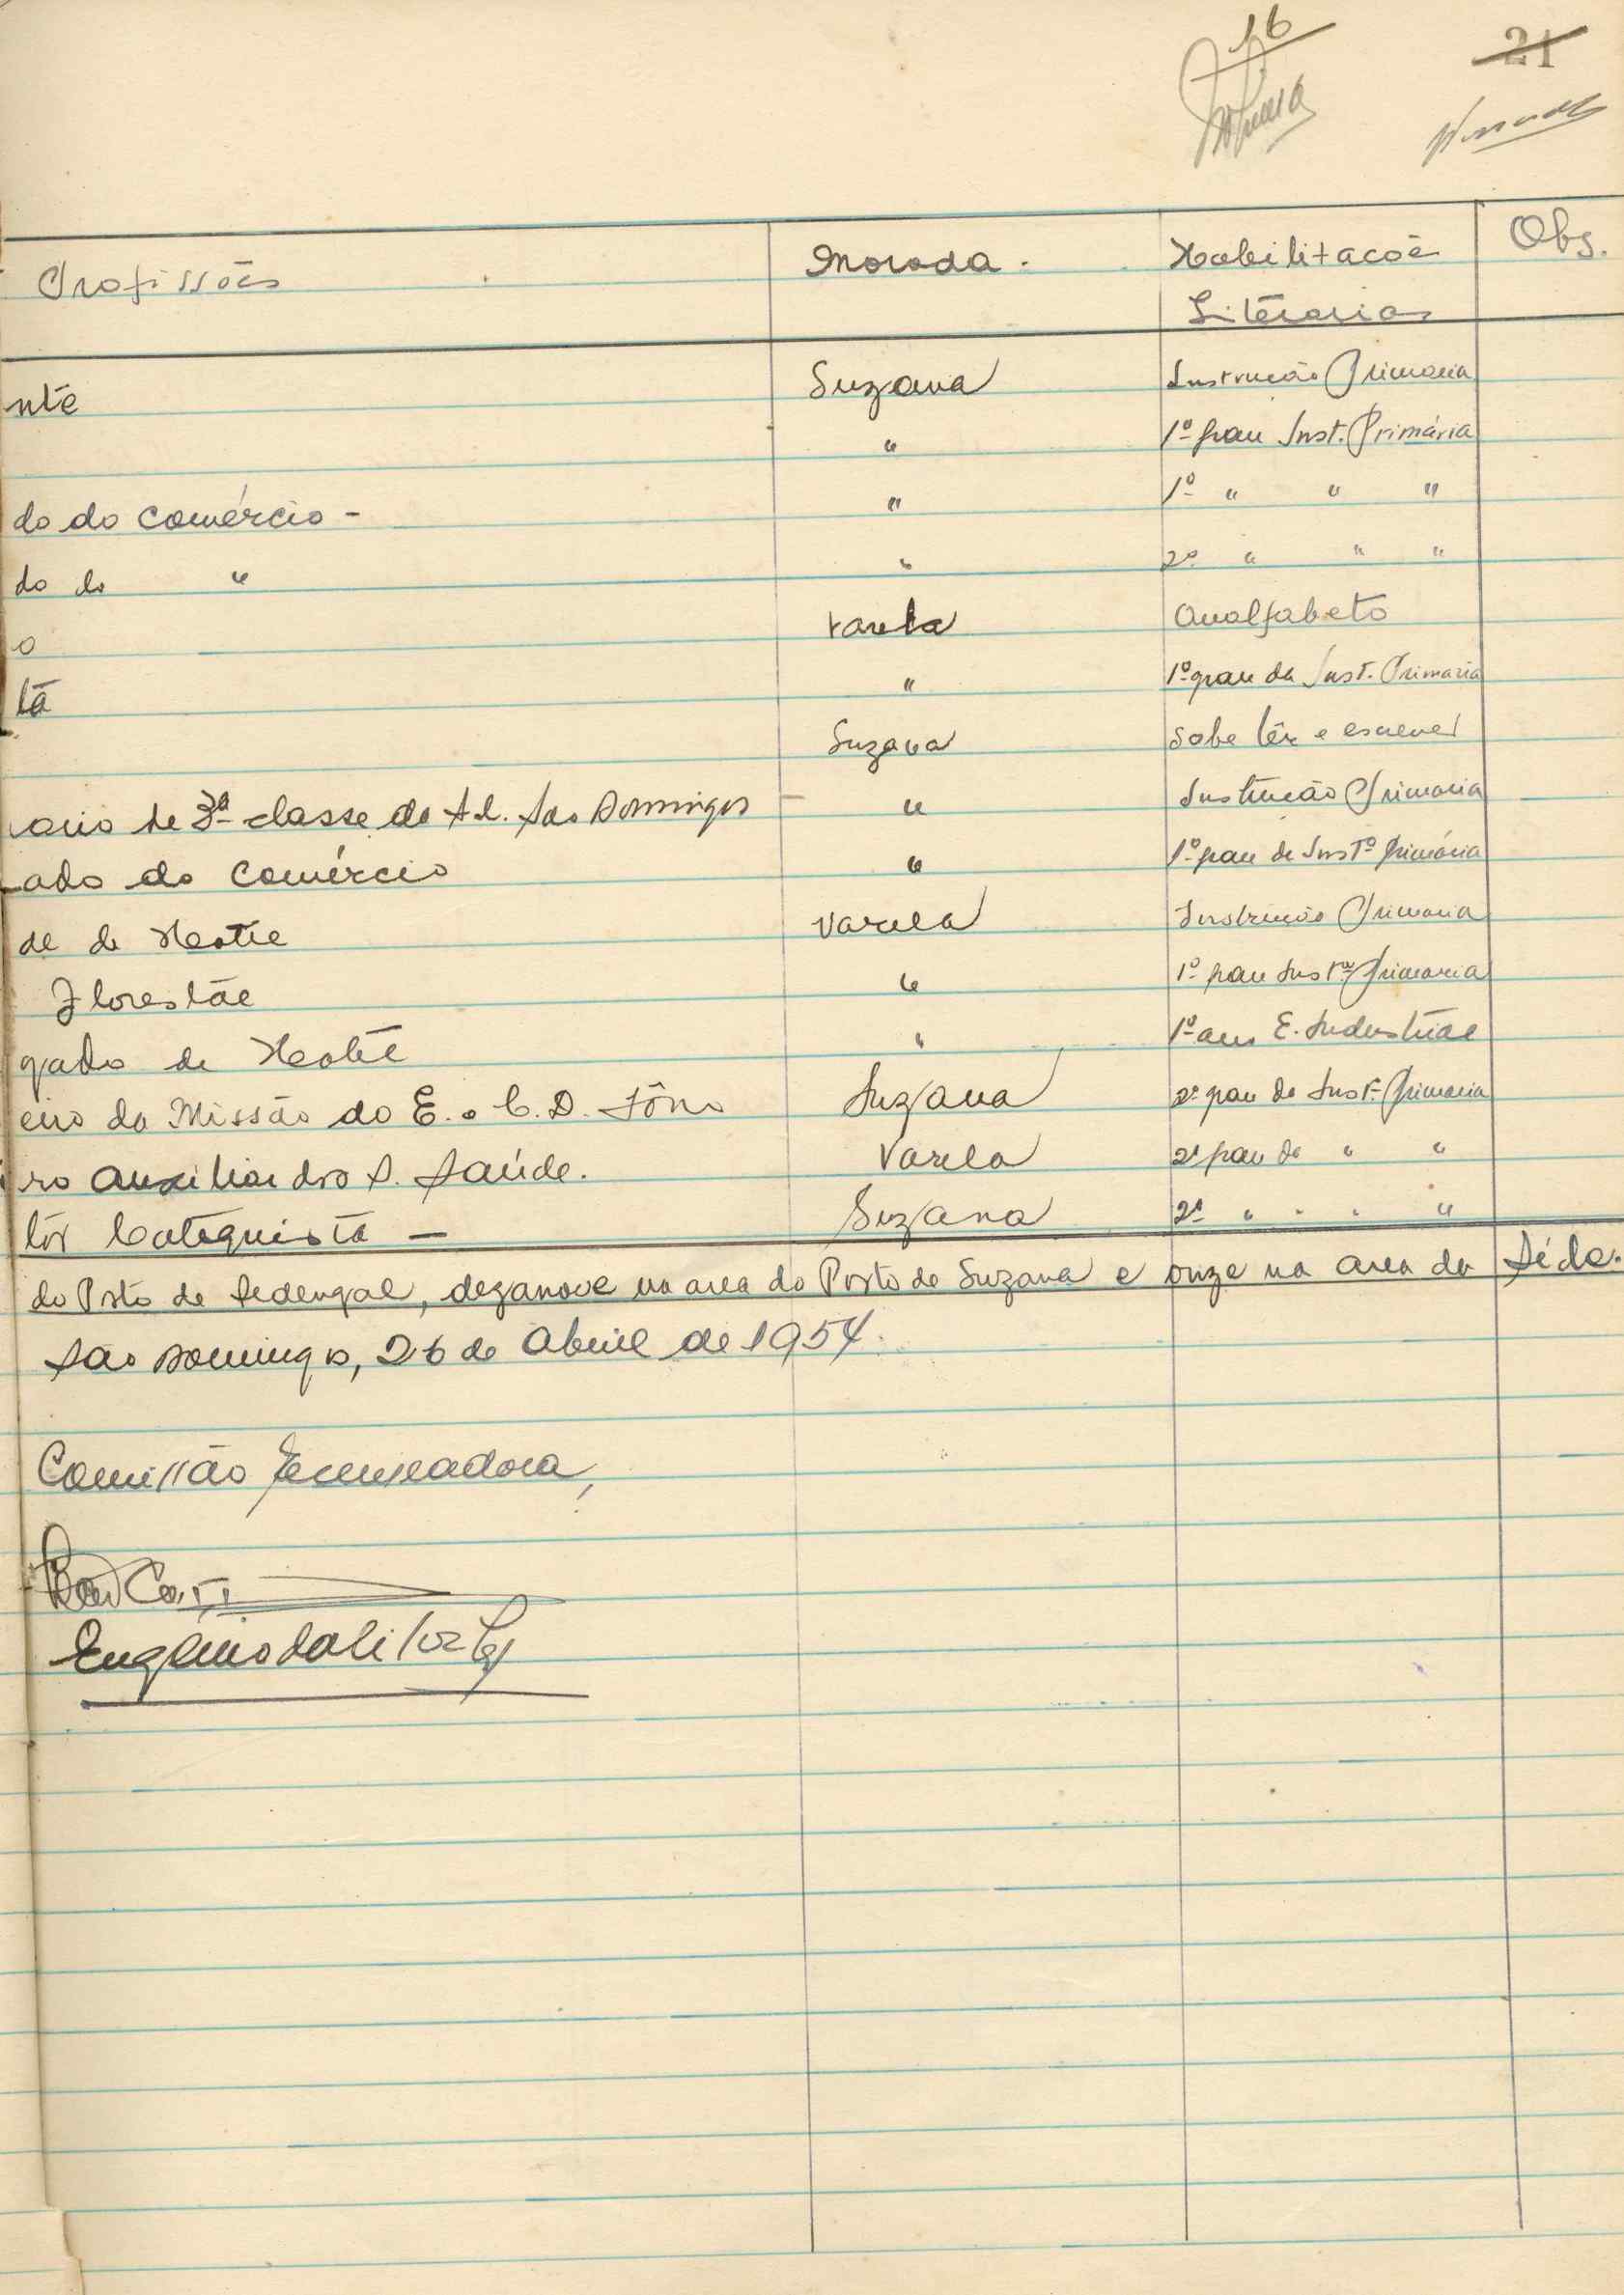 16
21
Profissões Morada. Habilitacoẽs Obs.
Litērarias
nte Suzana Instrução Primaria
" 1º grau Inst. Primária
do do comércio - " 1º " " "
do do " " 2º " " "
o Varela Analfabeto
tā " 1º grau da Inst. Primaria
Suzana Sabe lêr e escrever
ario de 3ª classe da Ad. São Domingos " Instrução Primaria
ado do comércio " 1º grau de Instº Primária
de de Varela Instrução Primaria
Florestāl " 1º grau Instª Primaria
gado de " 1º ano E. Industrial
eiro da Missão do E. e C. D. Sôno Suzana 2º grau da Inst. Primaria
ro Auxiliar dos S. Saúde. Varela 2º grau da " "
tor Catequista - Suzana 2º " " " "
do Posto de Sedengal, dezanove na area do Posto de Suzana e onze na area da Séde.
São Domingos, 26 de Abril de 1954.
Comissão Recenseadora,
Eugénio